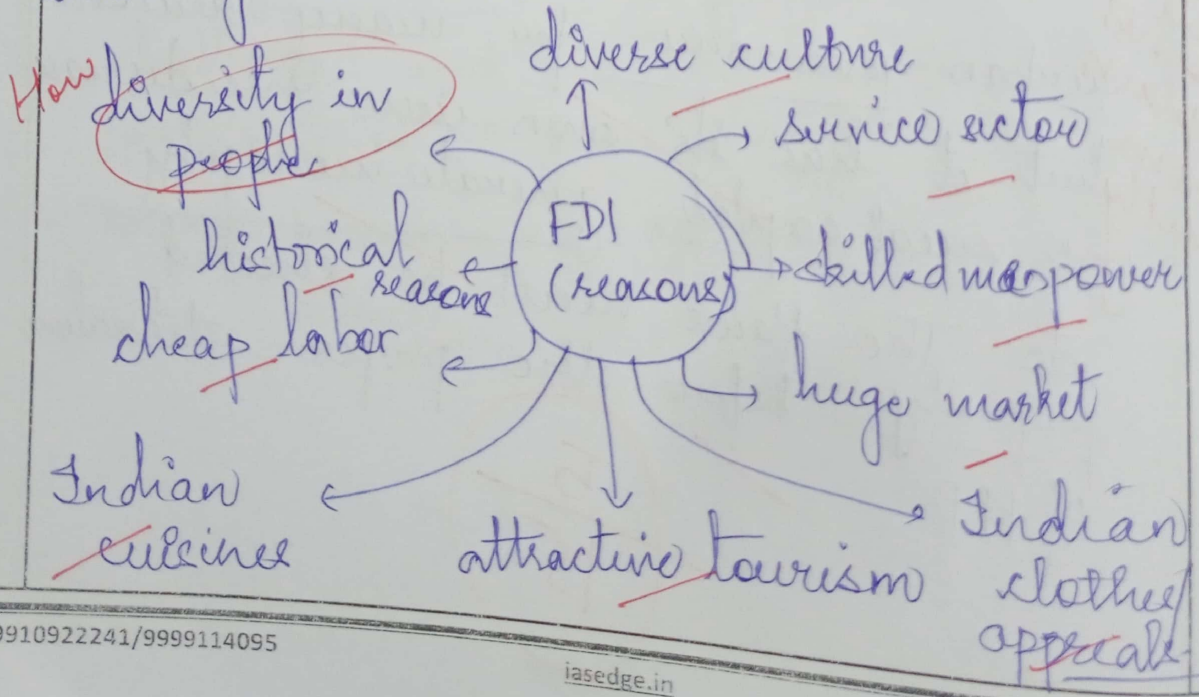 How
diversity in
people
diverse culture
service sector
historical
reasons
FDI
(reasons)
skilled manpower
cheap labor
huge market
Indian
cuisines
attractive tourism
Indian
clothes/
appreals
9910922241/9999114095
iasedge.in